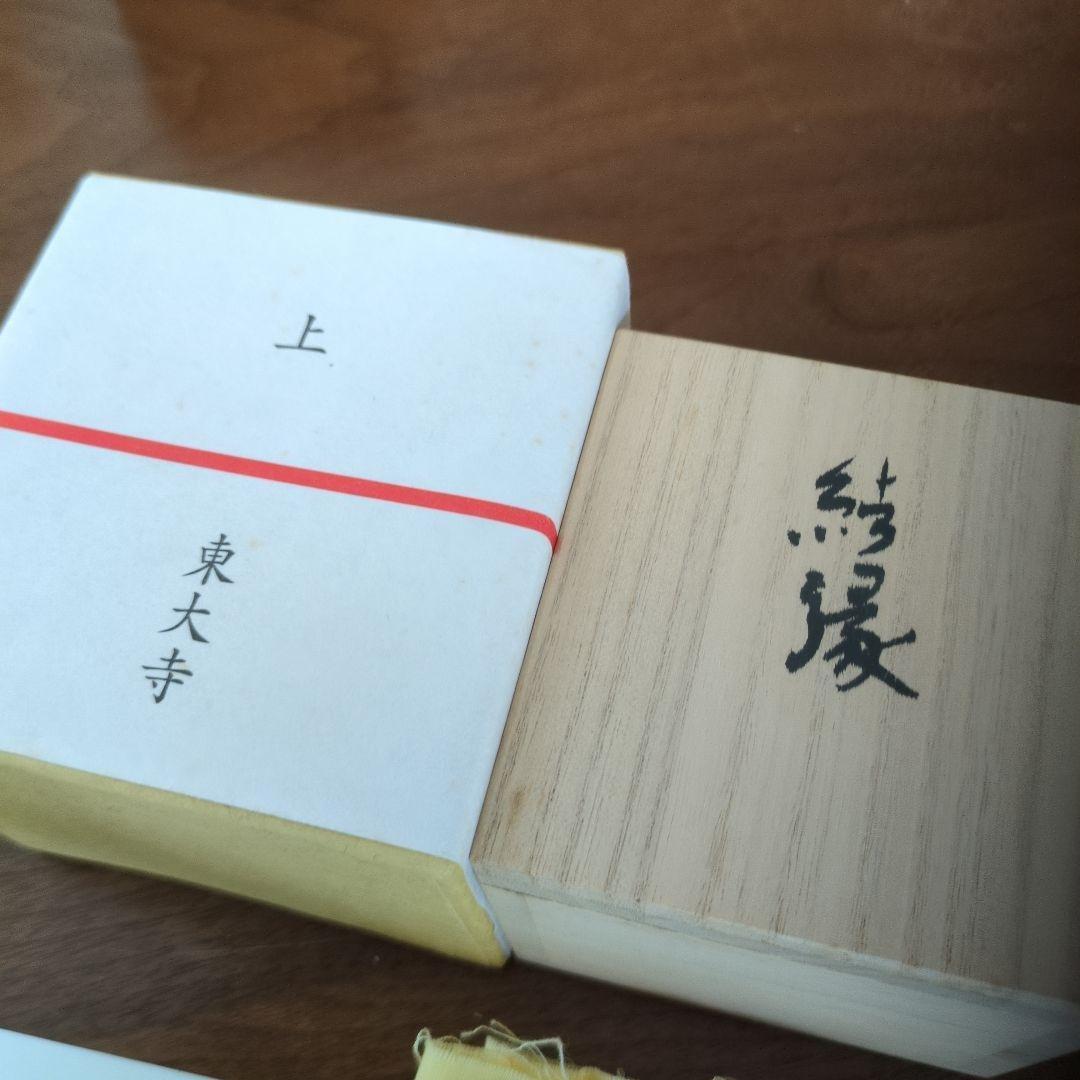 上
東大寺
結縁